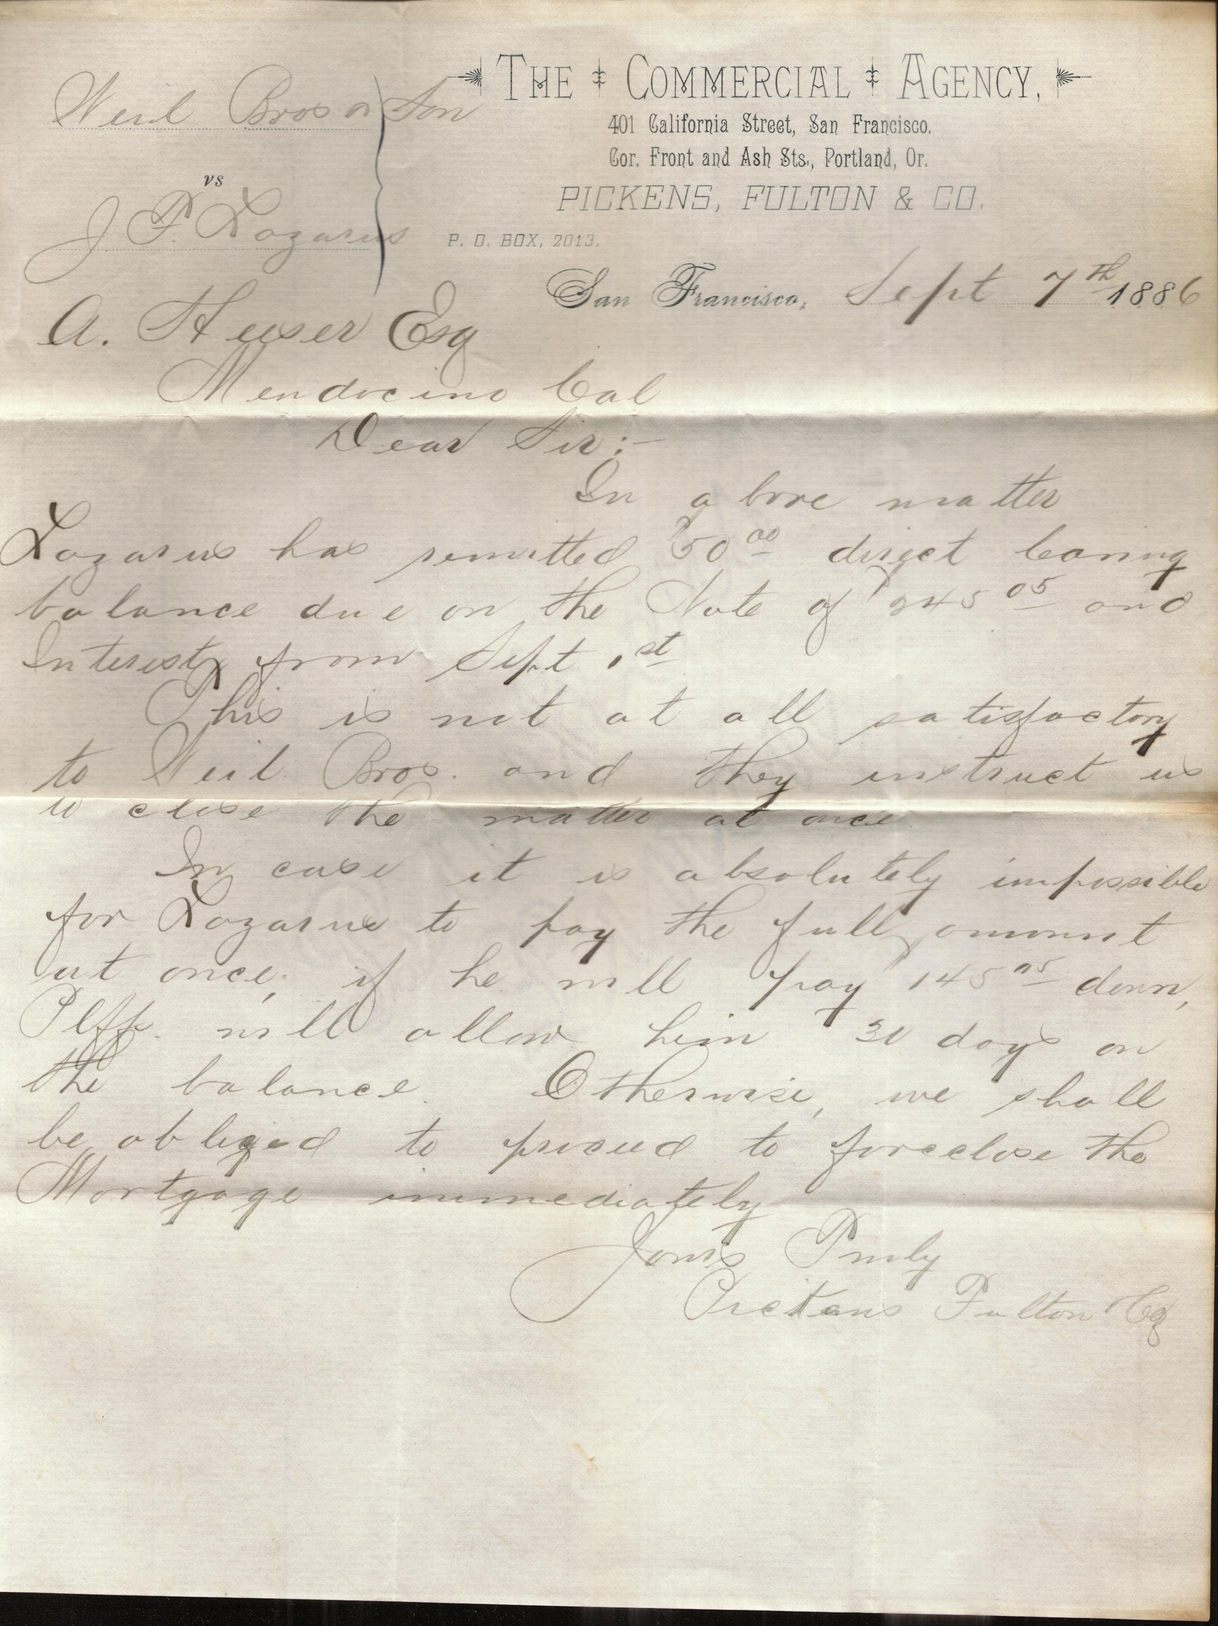 THE COMMERCIAL AGENCY,
401 California Street, San Francisco.
Cor. Front and Ash Sts., Portland, Or.
PICKENS, FULTON & CO.
P. O. BOX, 2013.
Weil Bros & Son
vs
J. P. Lazarus
San Francisco, Sept 7th 1886
A. Heeser Esq
Mendocino Cal
Dear Sir:-
In above matter
Lazarus has remitted $50 00 direct leaving
balance due on the Note of $245 05 and
Interest from Sept 1st
This is not at all satisfactory
to Weil Bros. and they instruct us
to close the matter at once
In case it is absolutely impossible
for Lazarus to pay the full amount
at once, if he will pay 145 05 down,
Plff. will allow him 30 days on
the balance. Otherwise, we shall
be obliged to proceed to foreclose the
Mortgage immediately
Yours Truly
Pickens Fulton & Co